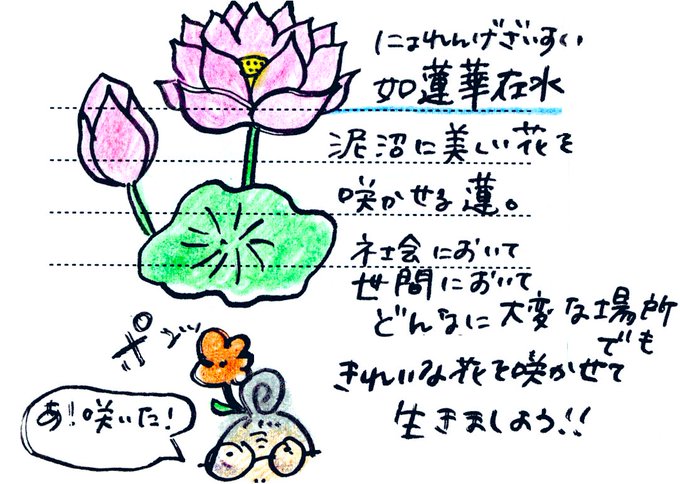 にょれんげざいすい
如蓮華在水
泥沼に美しい花を
咲かせる蓮。
社会において
世間において
どんなに大変な場所
でも
きれいな花を咲かせて
生きましょう!!
ポンッ
あ!咲いた!